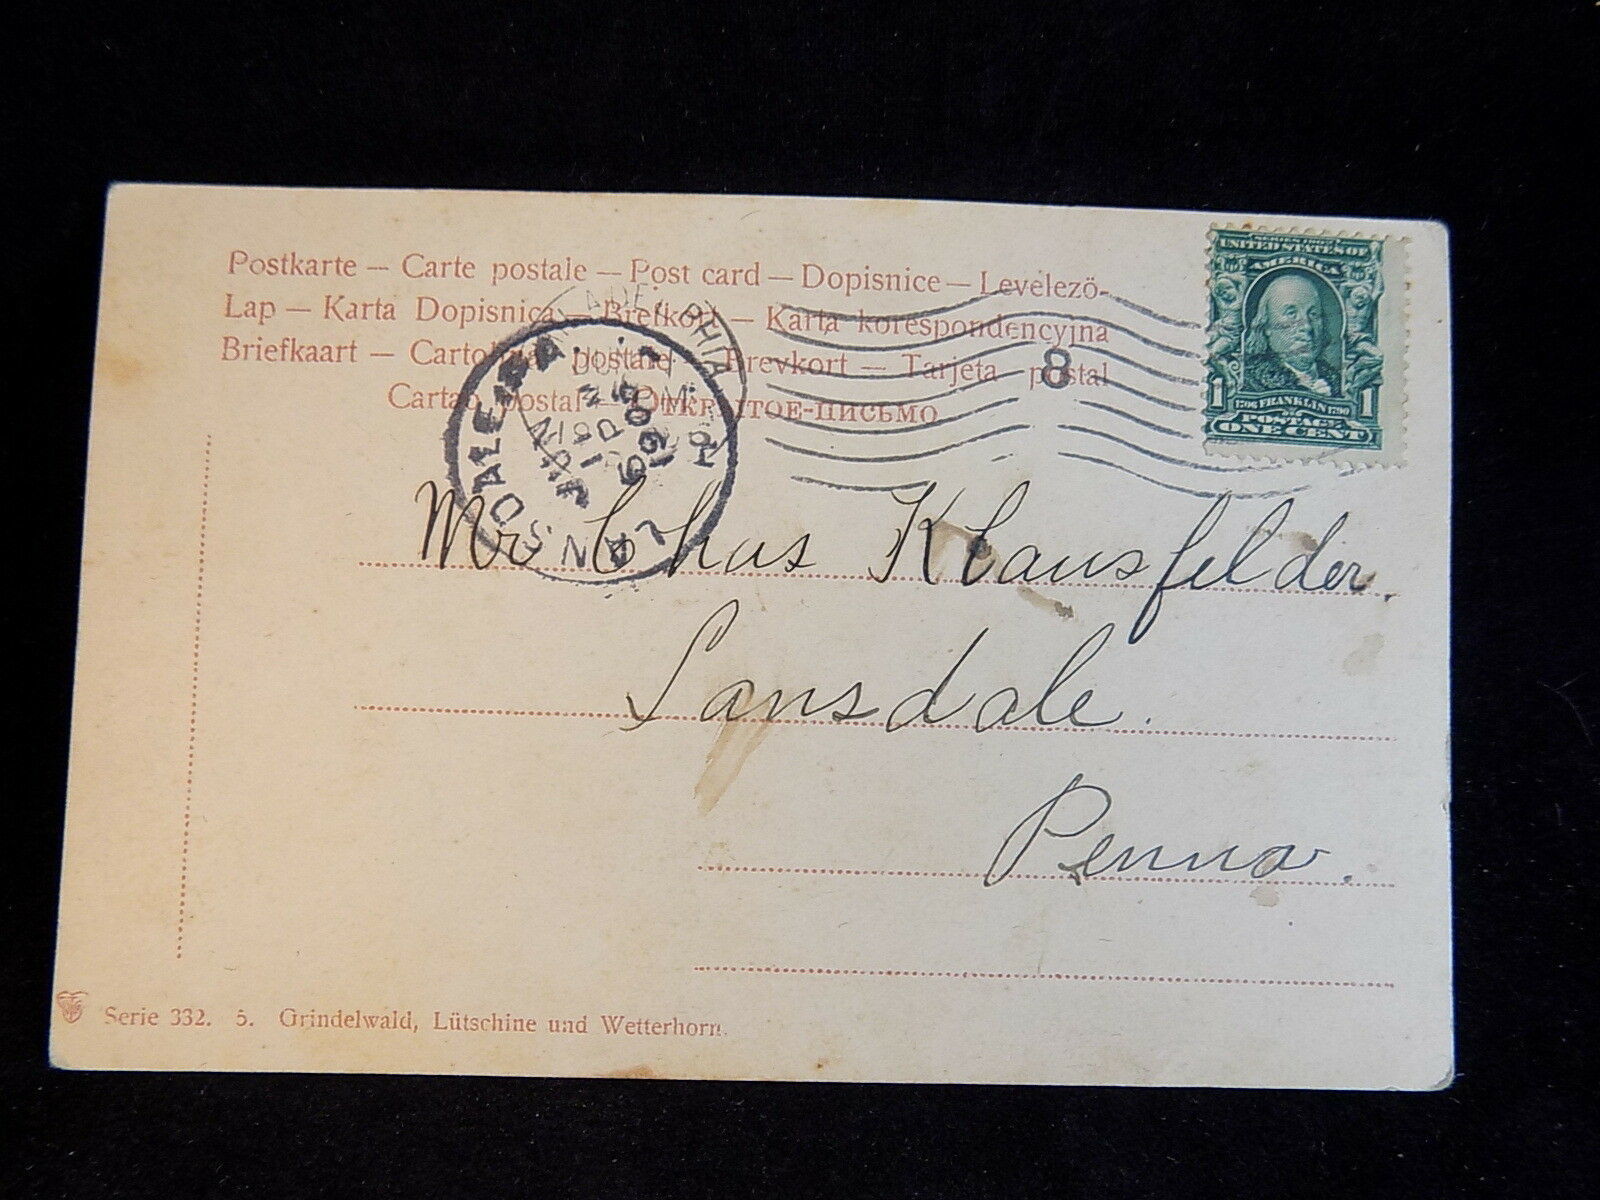 Postkarte — Carte postale — Post card — Dopisnice — Levelező-
Lap — Karta Dopisnica — Brefkort — Karta korespondencyjna
Briefkaart — Cartolina postale — Brevkort — Tarjeta postal
Cartao postal — Открытое-письмо
PHILADELPHIA
LANSDALE
JUN
1905
8
SERIES 1902
UNITED STATES OF
AMERICA
1706 FRANKLIN 1790
1 POSTAGE 1
ONE CENT
Mr Chas Klausfelder.
Lansdale.
Penna.
Serie 332. 5. Grindelwald, Lütschine und Wetterhorn.